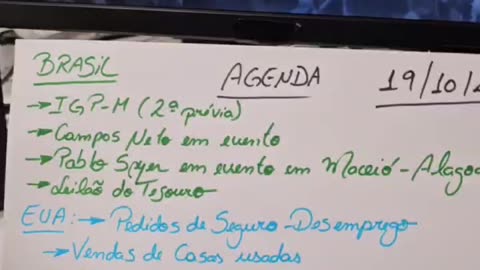 BRASIL
AGENDA
19/10/2
→ IGP-M (2ª prévia)
→ Campos Neto em evento
→ Pablo Spyer em evento em Maceió - Alagoa
→ Leilão do Tesouro
EUA: → Pedidos de Seguro-Desemprego
→ Vendas de Casas usadas